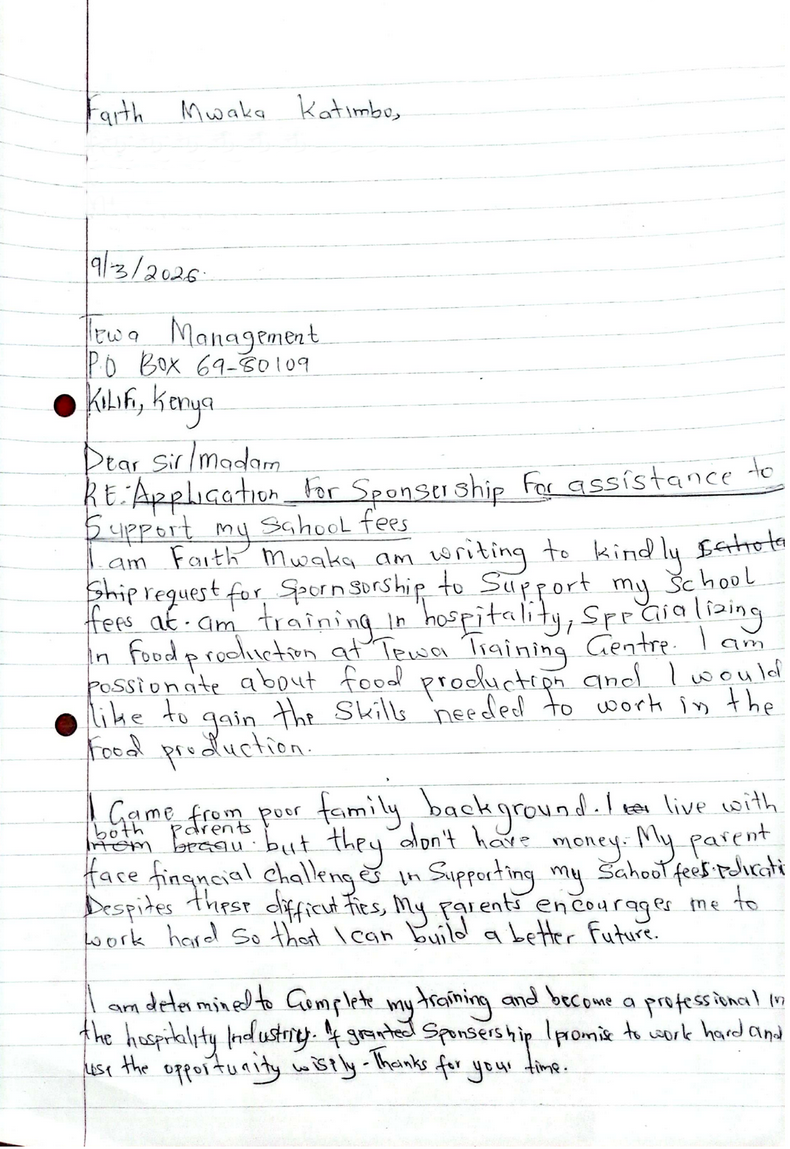 Faith Mwaka Katimbo,
9/3/2026.
Tewa Management
P.O BOX 69-80109
KILIFI, Kenya
Dear Sir/madam
RE: Application For Sponsership For assistance to
Support my School fees
I am Faith Mwaka am writing to kindly
Ship request for Spornsorship to Support my School
fees at. am training in hospitality, Specializing
in food production at Tewa Training Centre. I am
passionate about food production and I would
like to gain the Skills needed to work in the
Food production.
I Came from poor family background. I live with
both parents
but they don't have money. My parent
face financial challenges in Supporting my School fees.
Despites these difficulties, My parents encourages me to
work hard So that I can build a better Future.
I am determined to Complete my training and become a professional in
the hospitality Industry. If granted Sponsership I promise to work hard and
use the opportunity wisely - Thanks for your time.